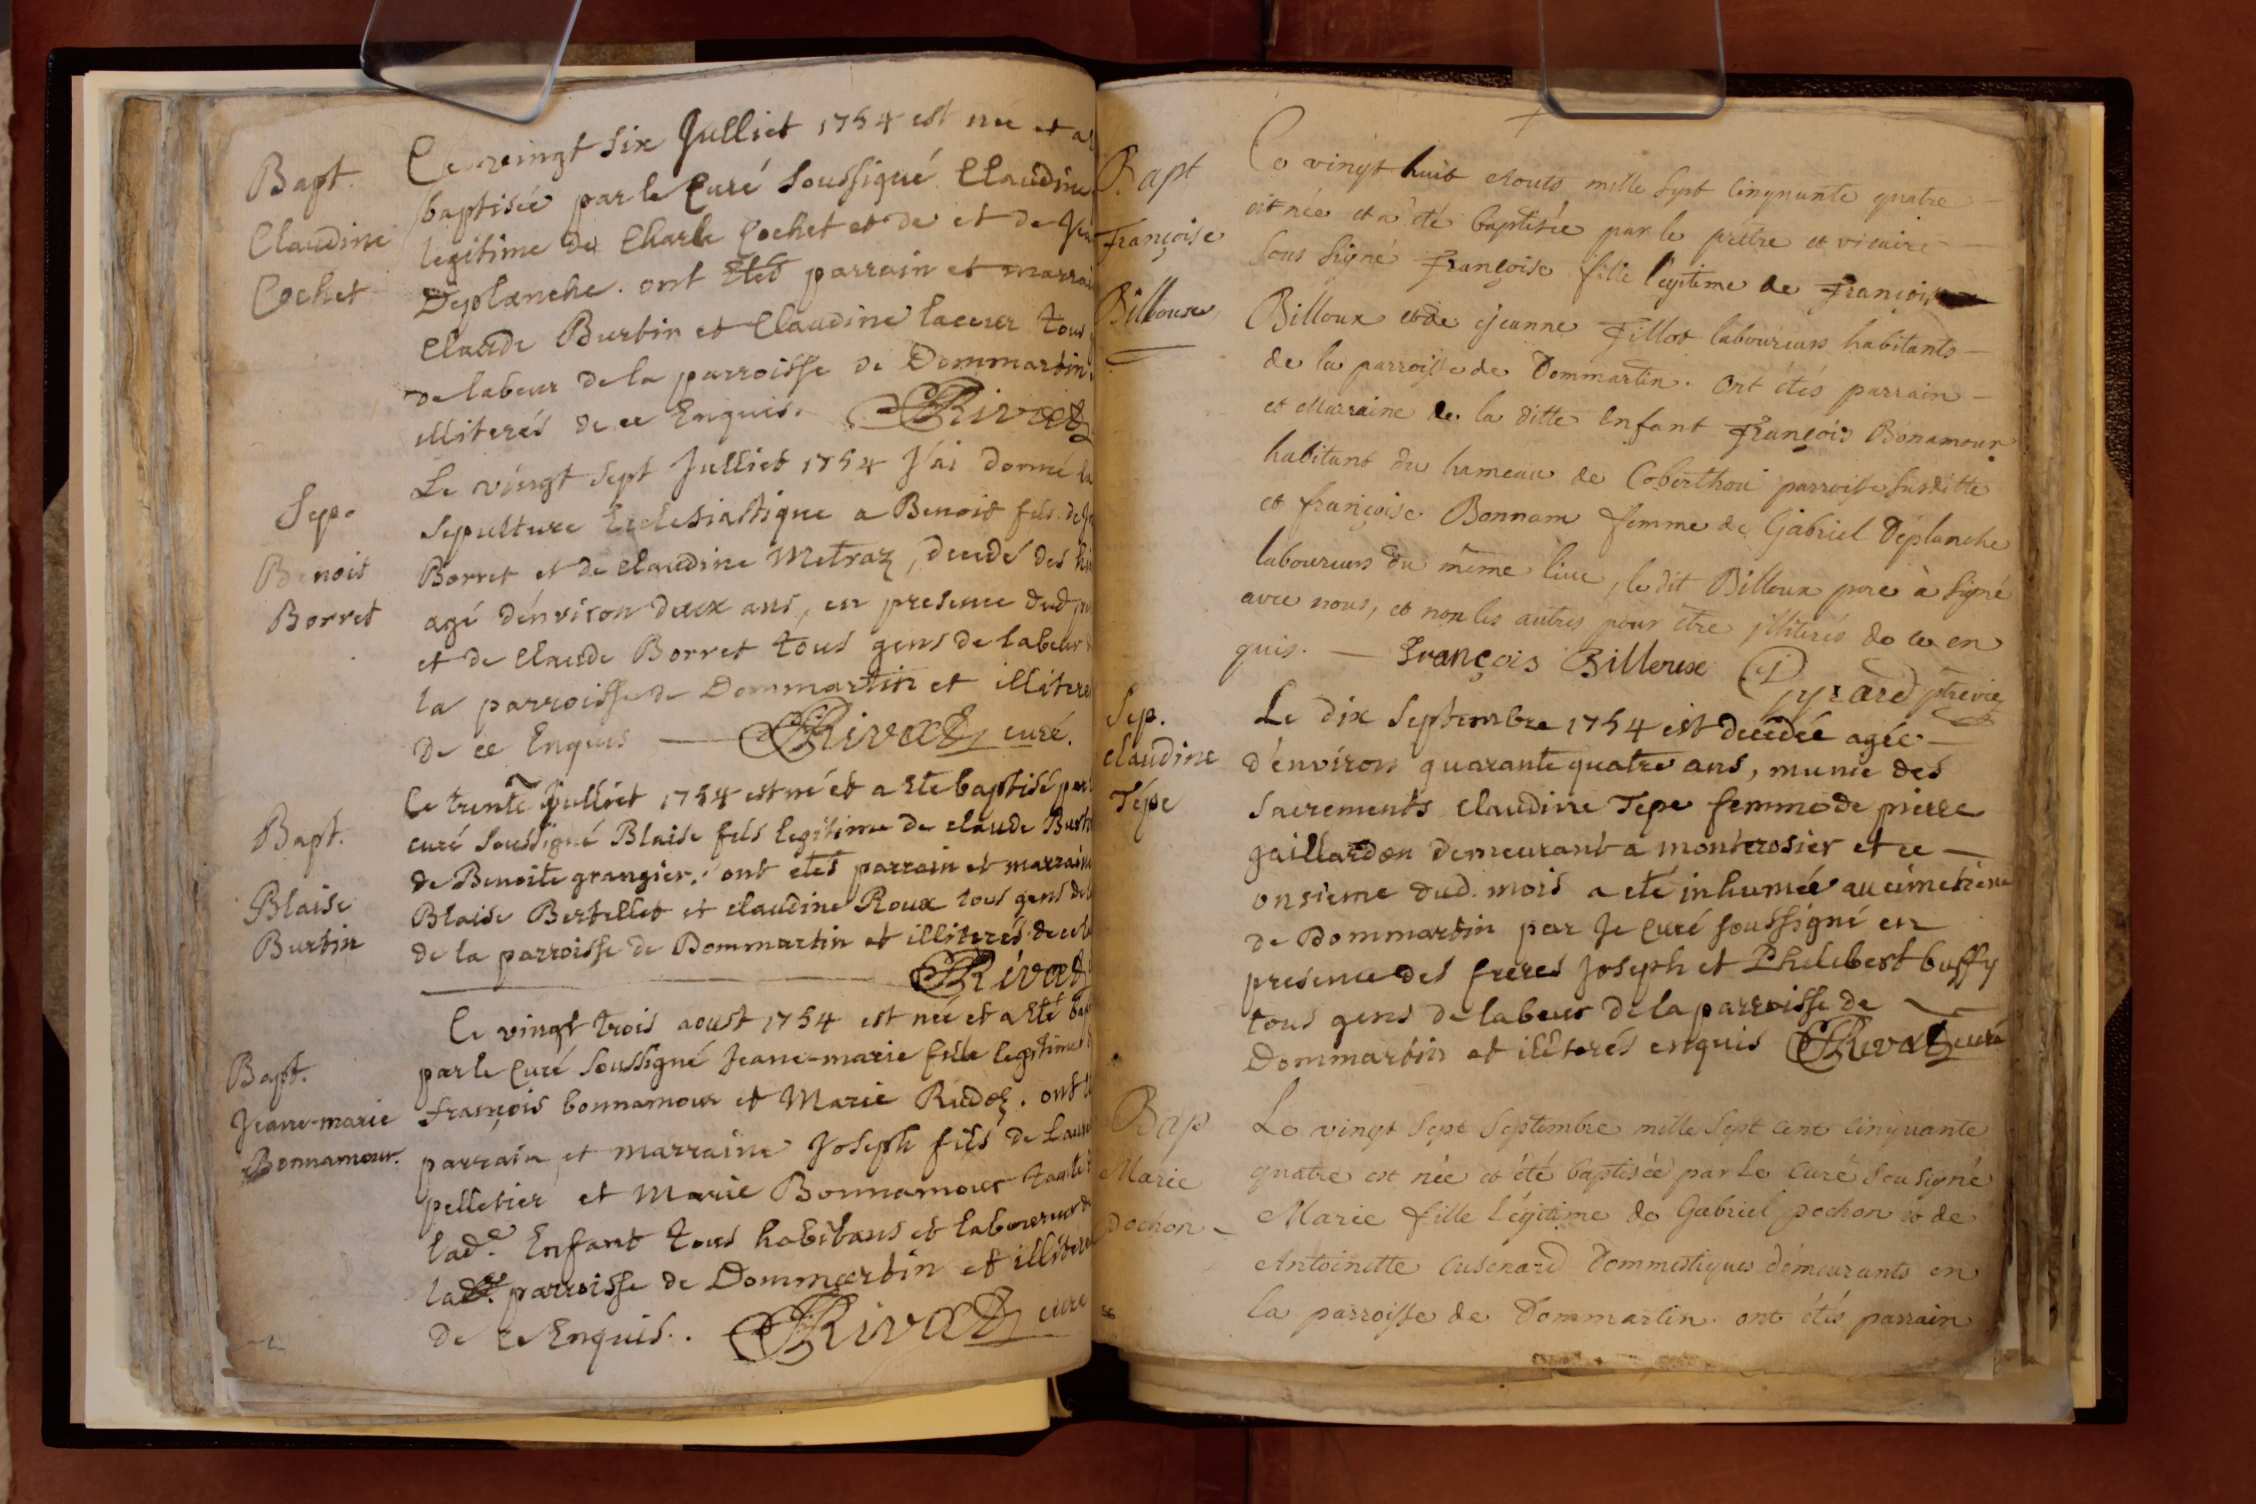 Bapt.
Claudine
Cochet
Ce vingt six Julliet 1754 est née et a
baptisée par le Curé Soussigné Claudine
legitime de Charle Cochet et de et de
Deplanche. ont Etés parrain et marrai
Claude Burtin et Claudine tous
de labeur de la parroisse de Dommartin
illiterés de ce Enquis. Rivat
Sep.
Benoit
Borret
Le vingt sept Julliet 1754 J'ai donné la
sepulture Ecclesiastique a Benoit fils de
Borret et de Claudine Metraz, decedé des
agé d'environ deux ans, en presence dud
et de Claude Borret tous gens de labeur
la parroisse de Dommartin et illitere
de ce Enquis Rivat curé.
Bapt.
Blaise
Burtin
Ce trente Julliet 1754 est né et a Eté baptisé par
curé Soussigné Blaise fils legitime de Claude Burt
de Benoite grangier. ont etés parrain et marraine
Blaise Bertellet et Claudine Roux tous gens de
de la parroisse de Dommartin et illiterés de ce
Rivat
Bapt.
Jeane-marie
Bonnamour.
Ce vingt trois aoust 1754 est née et a Eté bap
par le Curé Soussigné Jeane-marie fille legitime
françois bonnamour et Marie Rudoz. ont
parrain et marraine Joseph fils de
pelletier et Marie Bonnamour tante
lad.e Enfant tous habitans et laboureurs
lad.e parroisse de Dommartin et illitere
de ce Enquis. Rivat curé
Bapt
Françoise
Billoux
Ce vingt huit Aouts mille Sept Cinquante quatre
est née et a été baptisée par le prêtre et vicaire
Sous Signé françoise fille legitime de françois
Billoux et de Jeanne Fillot laboureurs habitants
de la parroisse de Dommartin. Ont étés parrain
et Marraine de la ditte Enfant françois Bonamour
habitant du hameau de Coberthou parroisse Susditte
et françoise Bonnam femme de Gabriel Déplanche
laboureurs du même lieu, le dit Billoux pere à Signé
avec nous, et non les autres pour être illiterés de ce en
quis. François Billoux Pyrard ptre vic
Sep.
Claudine
Tépe
Le dix Septembre 1754 est decedée agée
d'environ quarante quatre ans, munie des
sacrements Claudine Tepe femme de pierre
gaillardon demeurant a monterosier et ce
onsieme dud. mois a eté inhumée au cimetiere
de Dommartin par Je Curé soussigné en
presence des freres Joseph et Philebert buffy
tous gens de labeur de la parroisse de
Dommartin et illiterés enquis Rivat curé
Bap
Marie
Pochon
Le vingt Sept Septembre mille Sept Cent Cinquante
quatre est née et été baptisée par Le Curé Sousigné
Marie fille Légitime de Gabriel pochon et de
Antoinette Cusenard Dommestiques demeurants en
la parroisse de Dommartin. ont étés parrain